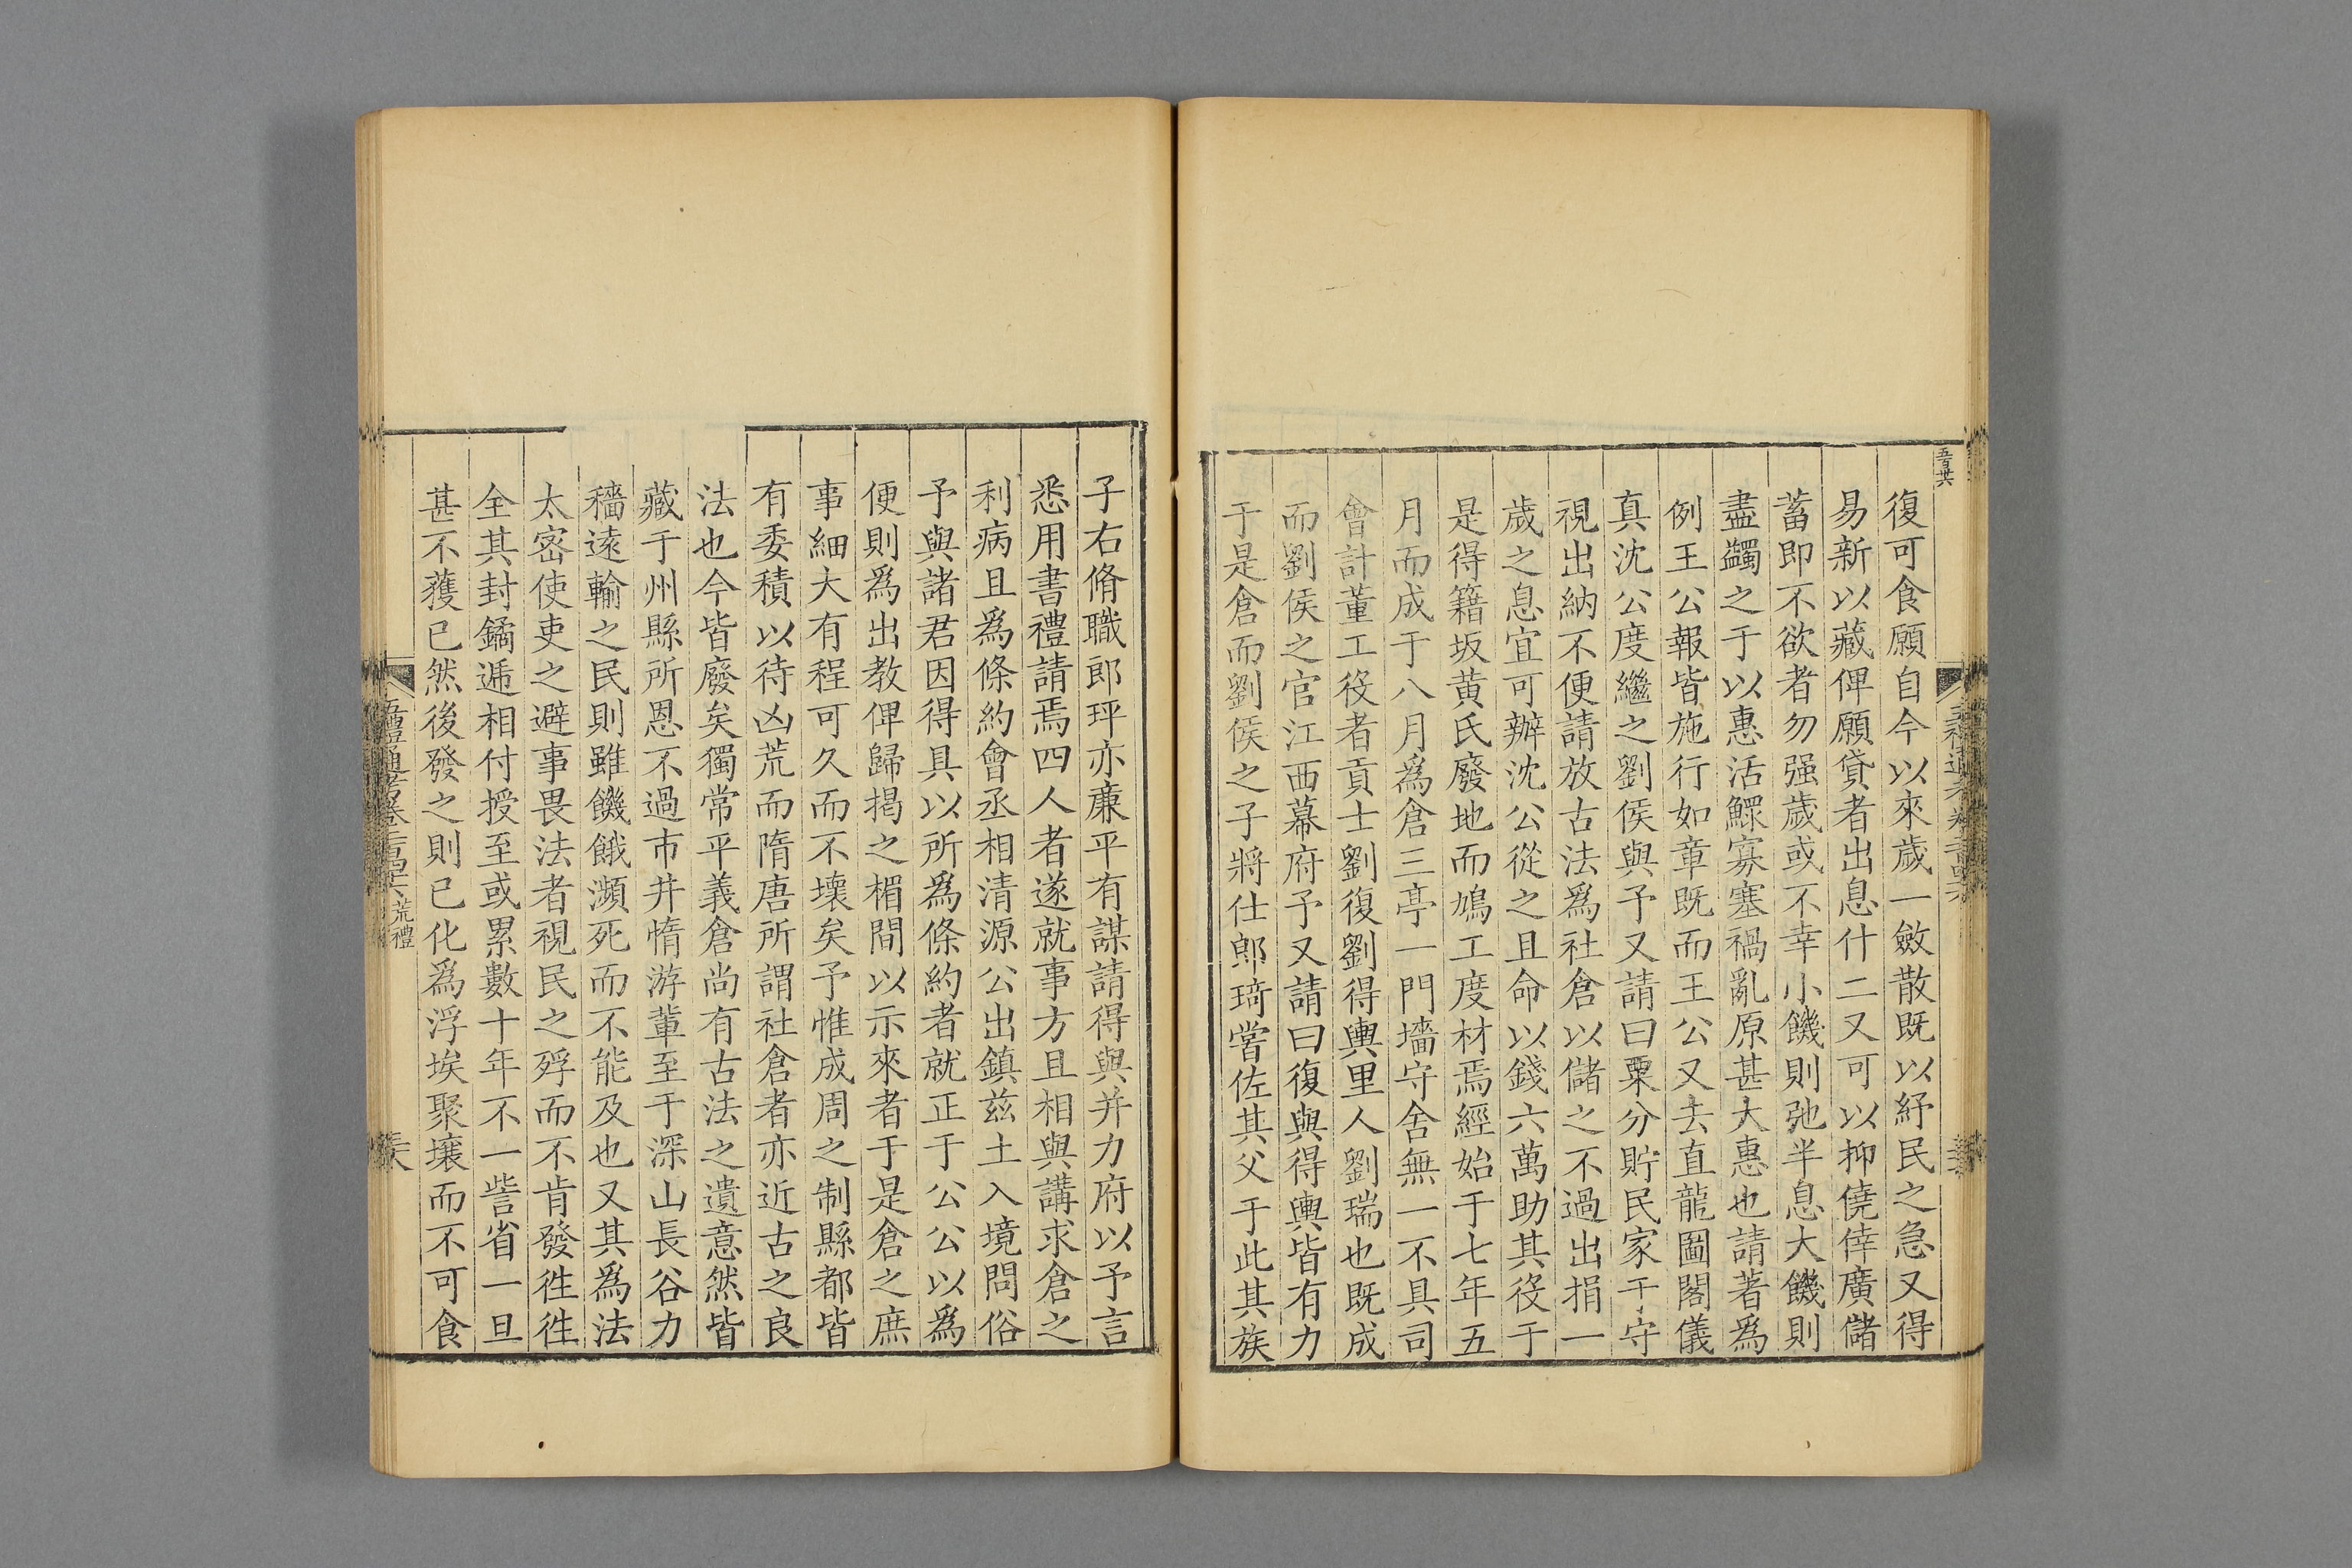 復可食願自今以來歲一斂散既以紓民之急又得
易新以藏俾願貸者出息什二又可以抑僥倖廣儲
蓄即不欲者勿强歲或不幸小饑則弛半息大饑則
盡蠲之于以惠活鰥寡塞禍亂原甚大惠也請著爲
例王公報皆施行如章既而王公又去直龍圖閣儀
真沈公度繼之劉侯與予又請曰粟分貯民家于守
視出納不便請放古法爲社倉以儲之不過出捐一
歲之息宜可辦沈公從之且命以錢六萬助其役于
是得籍坂黄氏廢地而鳩工度材焉經始于七年五
月而成于八月爲倉三亭一門墻守舍無一不具司
會計董工役者貢士劉復劉得輿里人劉瑞也既成
而劉侯之官江西幕府予又請曰復與得輿皆有力
于是倉而劉侯之子將仕郎琦嘗佐其父于此其族
子右脩職郎玶亦亷平有謀請得與并力府以予言
悉用書禮請焉四人者遂就事方且相與講求倉之
利病且爲條約會丞相清源公出鎮兹土入境問俗
予與諸君因得具以所爲條約者就正于公公以爲
便則爲出教俾歸揭之楣間以示來者于是倉之庶
事細大有程可久而不壞矣予惟成周之制縣都皆
有委積以待凶荒而隋唐所謂社倉者亦近古之良
法也今皆廢矣獨常平義倉尚有古法之遺意然皆
藏于州縣所恩不過市井惰游輩至于深山長谷力
穡遠輸之民則雖饑餓瀕死而不能及也又其爲法
太密使吏之避事畏法者視民之殍而不肯發徃徃
全其封鐍遞相付授至或累數十年不一訾省一旦
甚不獲已然後發之則已化爲浮埃聚壤而不可食
五禮通考卷二百四十六荒禮